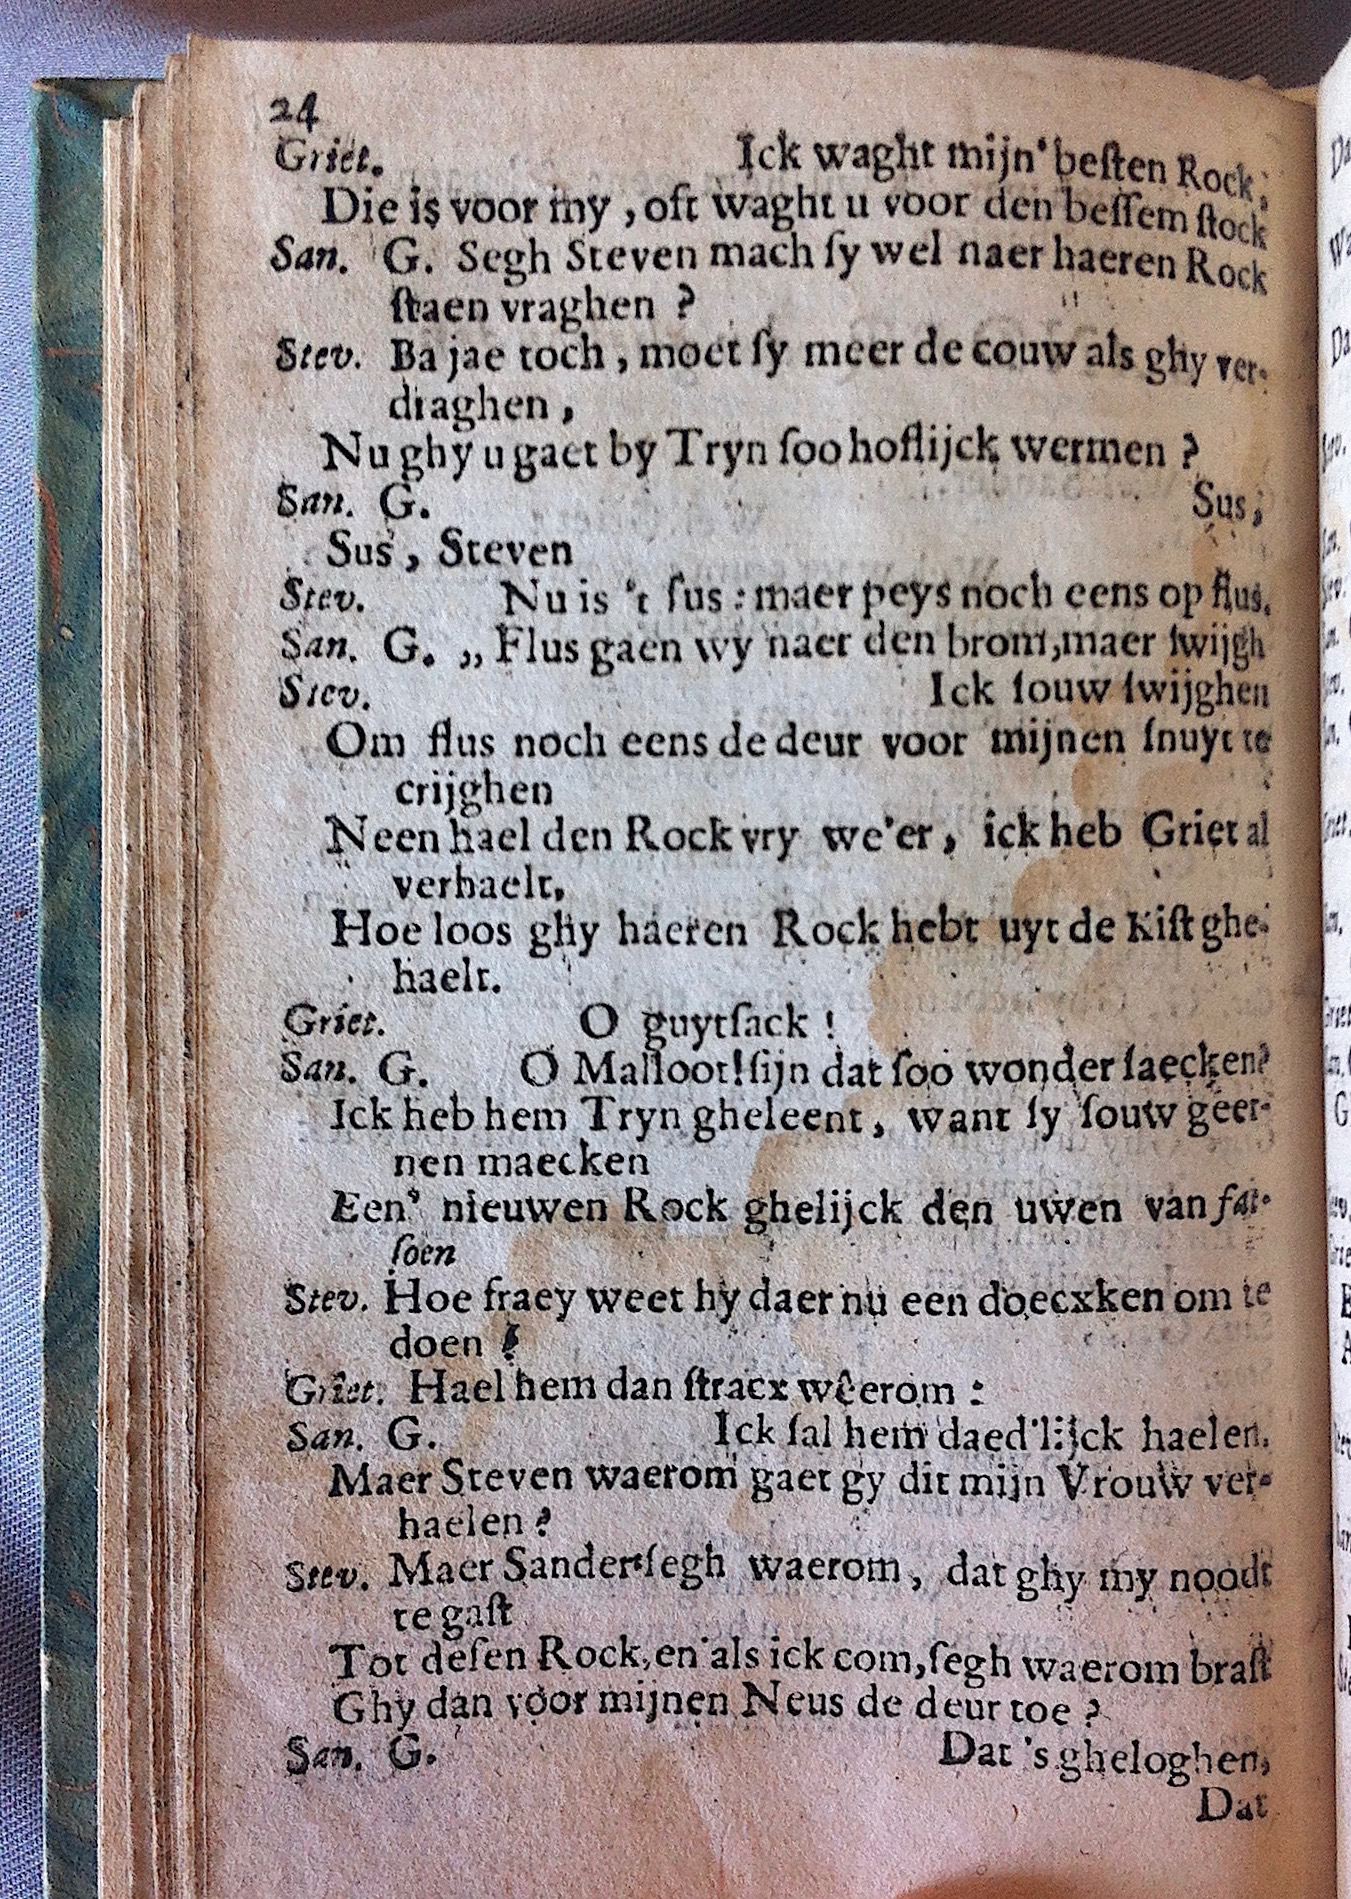 24
Griet. Ick waght mijn' besten Rock,
Die is voor my, oft waght u voor den bessem stock
San. G. Segh Steven mach sy wel naer haeren Rock
staen vraghen ?
Stev. Ba jae toch, moet sy meer de couw als ghy ver-
draghen,
Nu ghy u gaet by Tryn soo hoflijck wermen ?
San. G. Sus,
Sus, Steven
Stev. Nu is 't sus : maer peys noch eens op flus.
San. G. ,, Flus gaen wy naer den brom, maer swijgh
Stev. Ick souw swijghen
Om flus noch eens de deur voor mijnen snuyt te
crijghen
Neen hael den Rock vry we'er, ick heb Griet al
verhaelt,
Hoe loos ghy haeren Rock hebt uyt de Kist ghe-
haelt.
Griet. O guytsack !
San. G. O Malloot! sijn dat soo wonder saecken?
Ick heb hem Tryn gheleent, want sy souw geer-
nen maecken
Een' nieuwen Rock ghelijck den uwen van fat-
soen
Stev. Hoe fraey weet hy daer nu een doecxken om te
doen !
Griet. Hael hem dan stracx wêerom :
San. G. Ick sal hem daed'lijck haelen.
Maer Steven waerom gaet gy dit mijn Vrouw ver-
haelen ?
Stev. Maer Sander segh waerom, dat ghy my noodt
te gast
Tot desen Rock, en als ick com, segh waerom brast
Ghy dan voor mijnen Neus de deur toe ?
San. G. Dat 's gheloghen,
Dat